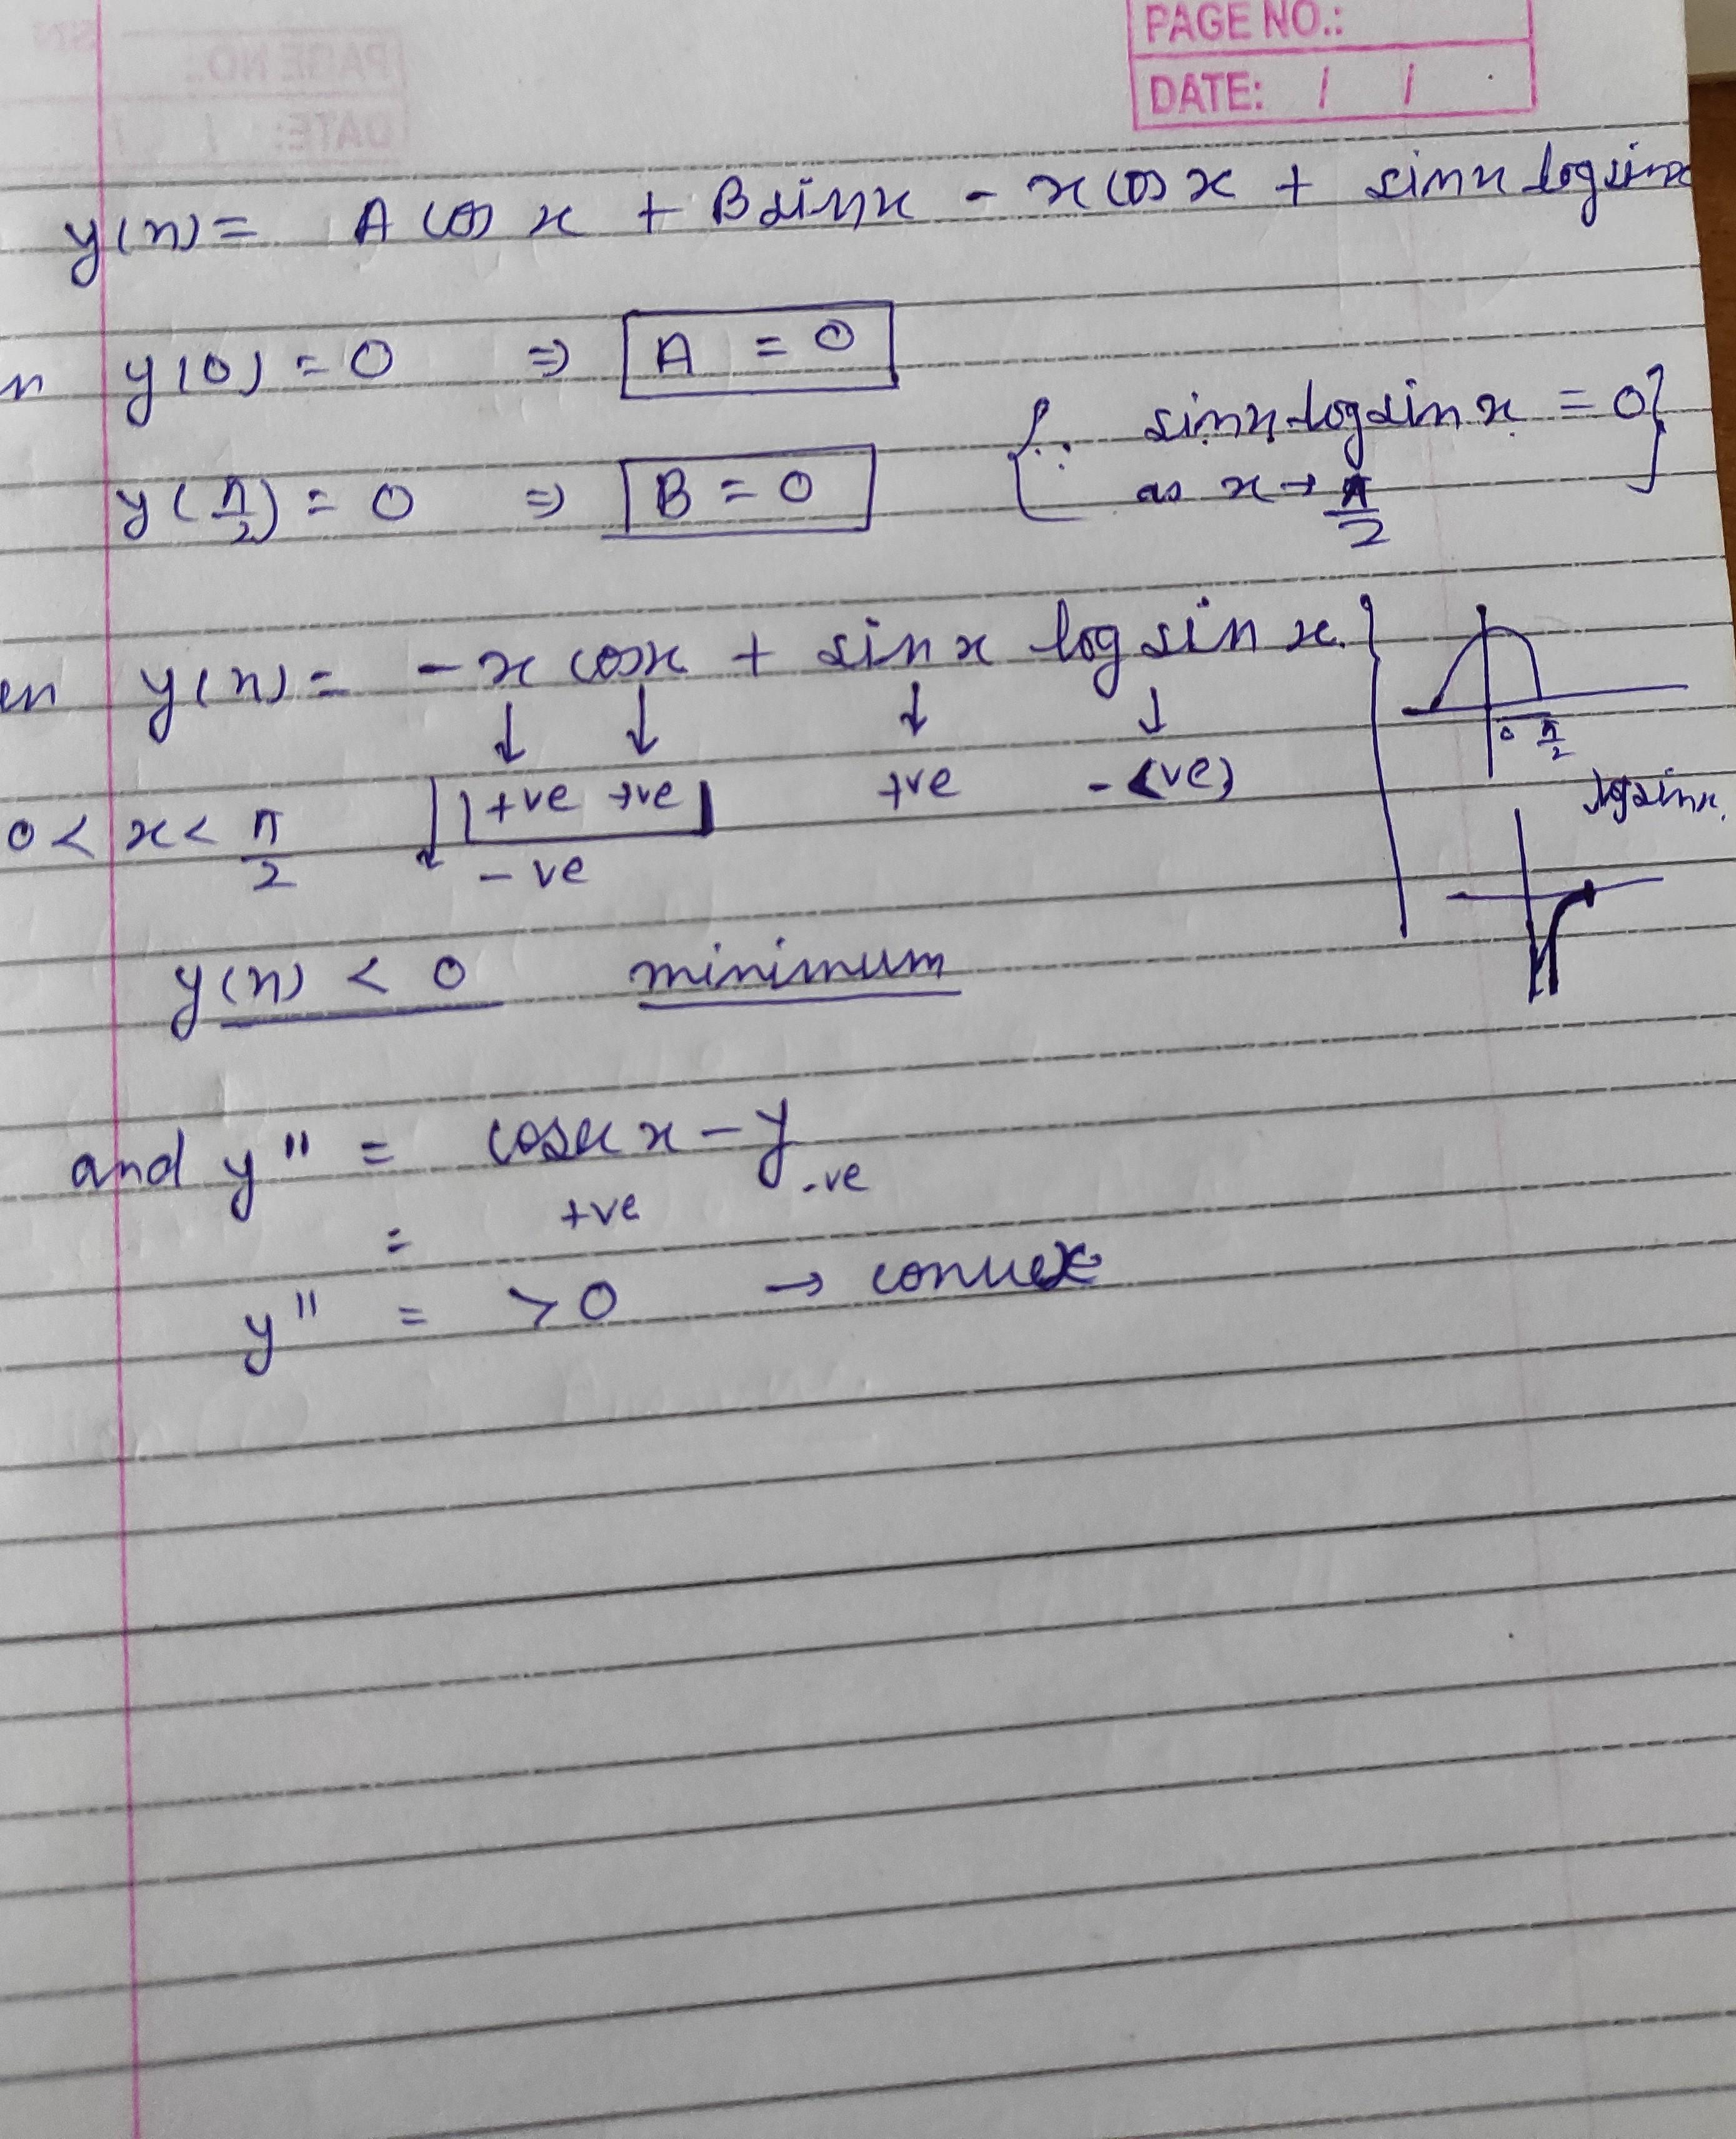 PAGE NO.:
DATE: / /
y(x) = A cos x + B sin x - x cos x + sin x log sin x
n y(0) = 0 ⇒ A = 0
y(π/2) = 0 ⇒ B = 0 {∵ sin x log sin x = 0 as x → π/2}
en y(x) = - x cos x + sin x log sin x
↓ ↓ ↓ ↓
0 < x < π/2 +ve +ve +ve - (ve)
- ve
0 π/2
log sin x
y(x) < 0 minimum
and y'' = cosec x - y
= +ve -ve
y'' = > 0 → convex